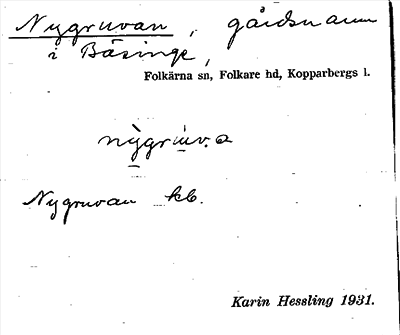 Nygruvan, gårdsnamn
i Bäsinge,
Folkärna sn, Folkare hd, Kopparbergs l.
nỳgruv.a
Nygruvan kb.
Karin Hessling 1931.